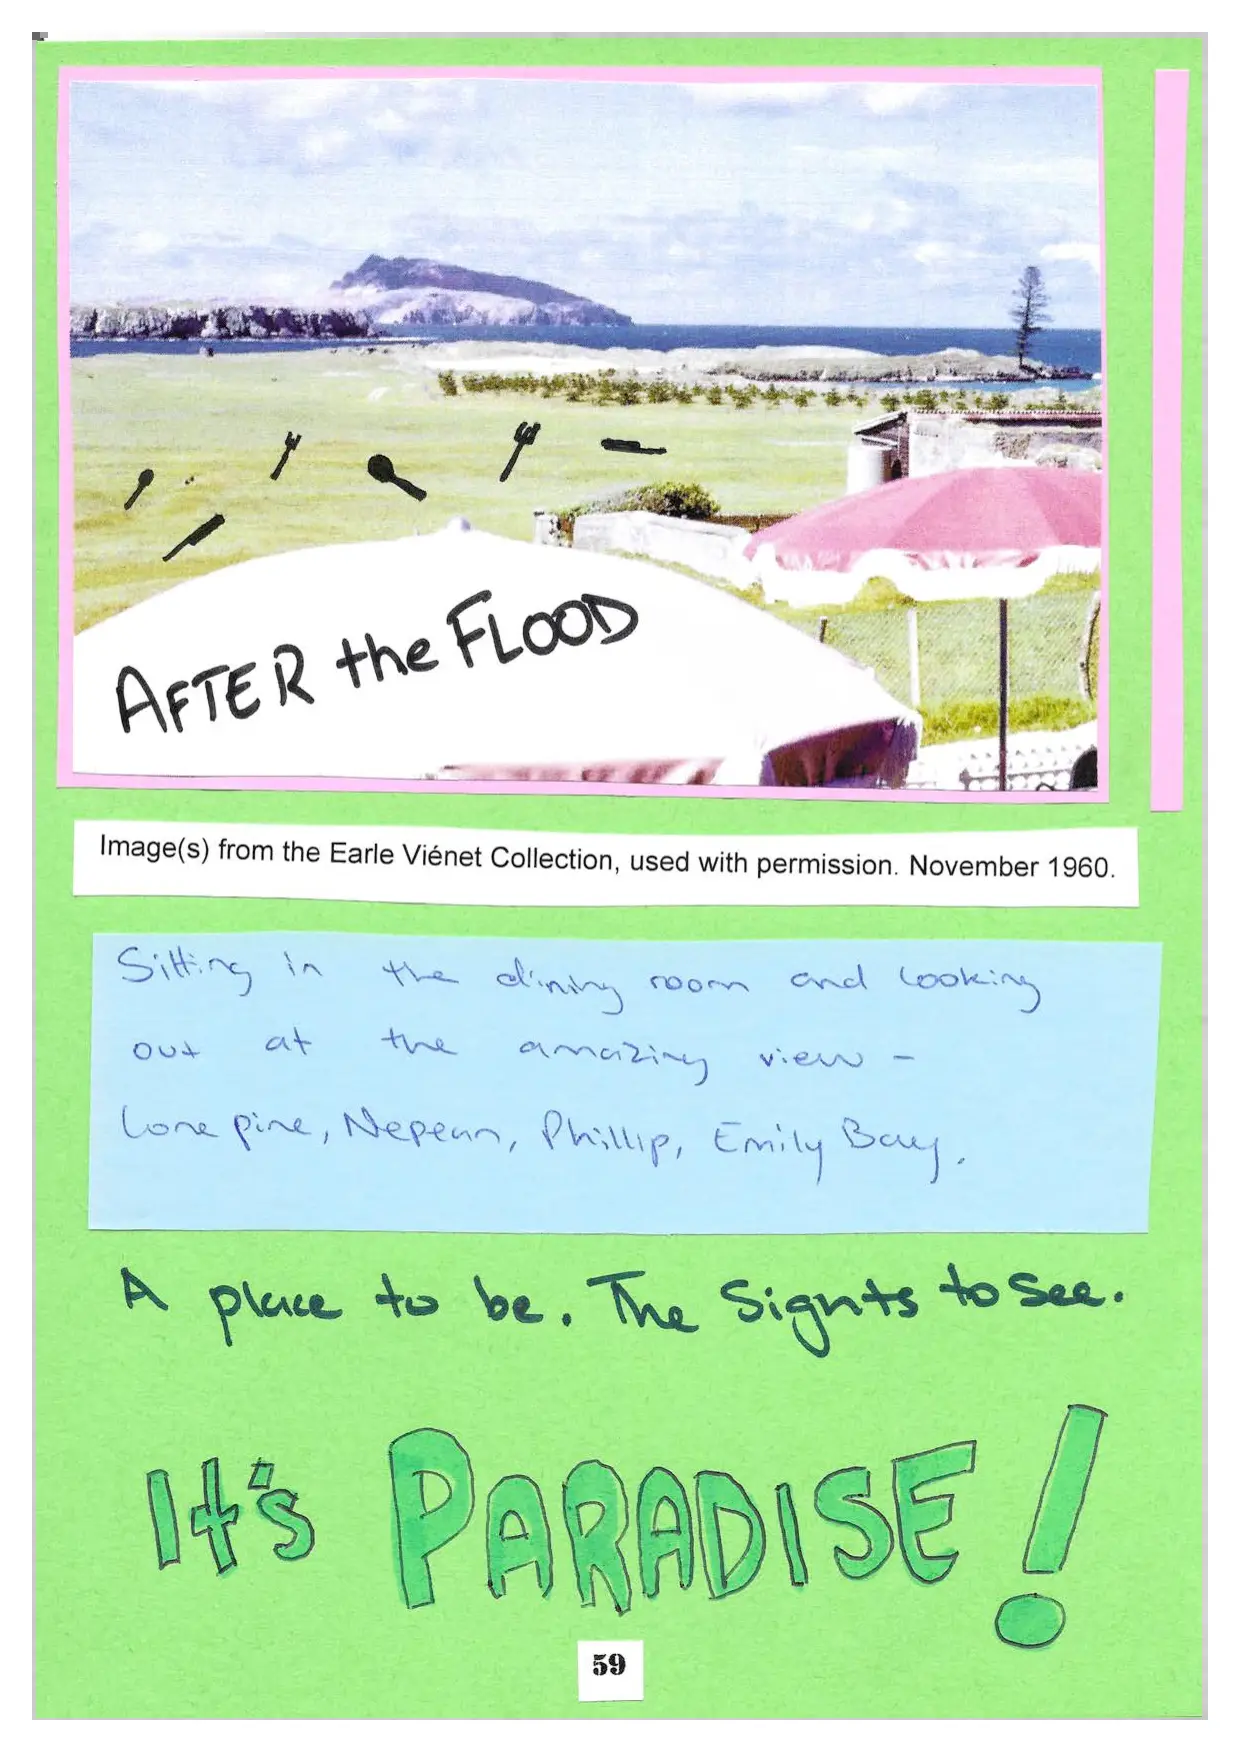 AFTER the FLOOD
Image(s) from the Earle Viénet Collection, used with permission. November 1960.
Sitting in the dining room and looking
out at the amazing view -
Lone pine, Nepean, Phillip, Emily Bay.
A place to be. The Sights to See.
It's PARADISE!
59